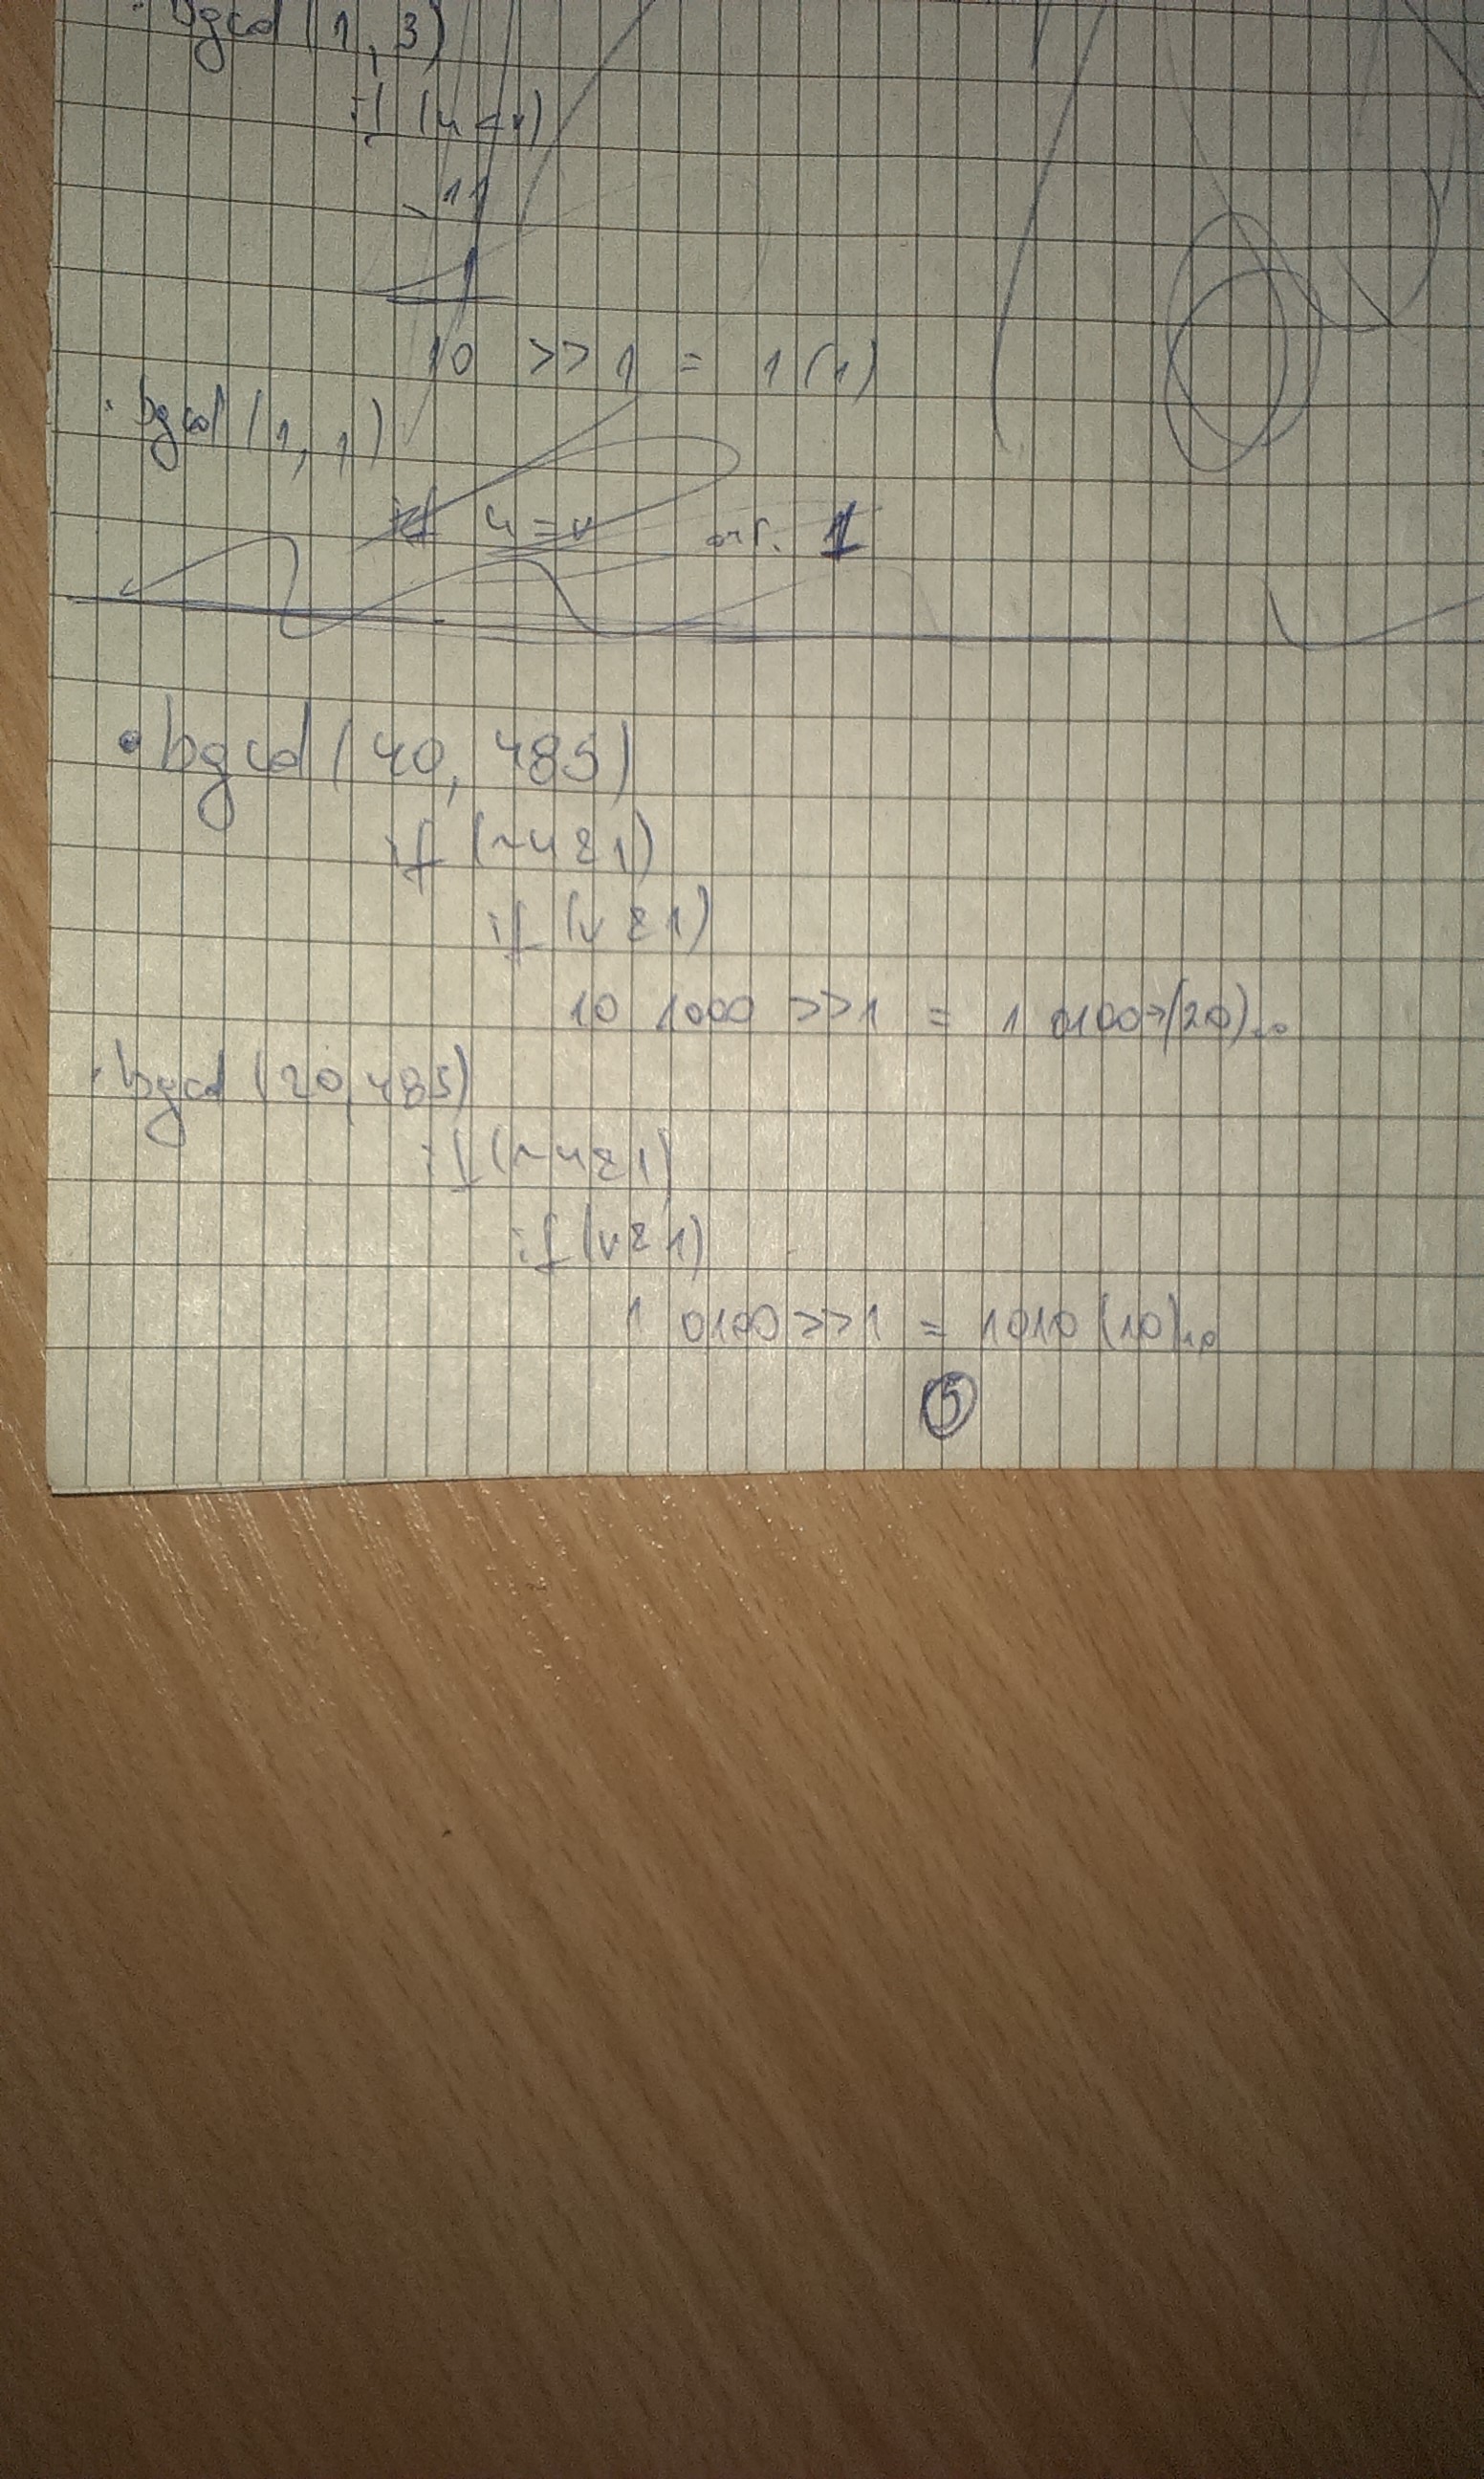 · bgcd (1, 3)
if (u < v)
- 11
1
10 >> 1 = 1 (1)
· bgcd (1, 1)
if u = v от. 1
• bgcd (40, 485)
if (~u & 1)
if (v & 1)
10 1000 >> 1 = 1 0100 → (20)10
· bgcd (20, 485)
if (~u & 1)
if (v & 1)
1 0100 >> 1 = 1010 (10)10
5